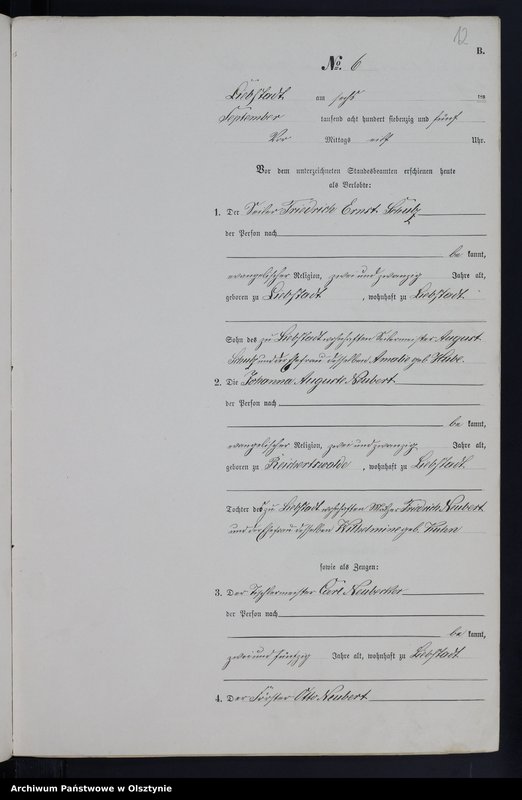 12
B.
No. 6
Liebstadt am sechs ten
September tausend acht hundert siebenzig und fünf
Vor Mittags elf Uhr.
Vor dem unterzeichneten Standesbeamten erschienen heute
als Verlobte:
1. Der Seiler Friedrich Ernst Schulz
der Person nach
be kannt,
evangelischer Religion, zwei und zwanzig Jahre alt,
geboren zu Liebstadt, wohnhaft zu Liebstadt
Sohn des zu Liebstadt wohnhaften Seilermeister August
Schulz und der Ehefrau desselben Amalie geb.
2. Die Johanna Auguste Neubert
der Person nach
be kannt,
evangelischer Religion, zwei und zwanzig Jahre alt,
geboren zu Reichertswalde, wohnhaft zu Liebstadt
Tochter des zu Liebstadt wohnhaften Friedrich Neubert
und der Ehefrau desselben Wilhelmine geb.
sowie als Zeugen:
3. Der Tischlermeister Carl
der Person nach
be kannt,
zwei und fünfzig Jahre alt, wohnhaft zu Liebstadt
4. Der Förster Otto Neubert
Archiwum Państwowe w Olsztynie